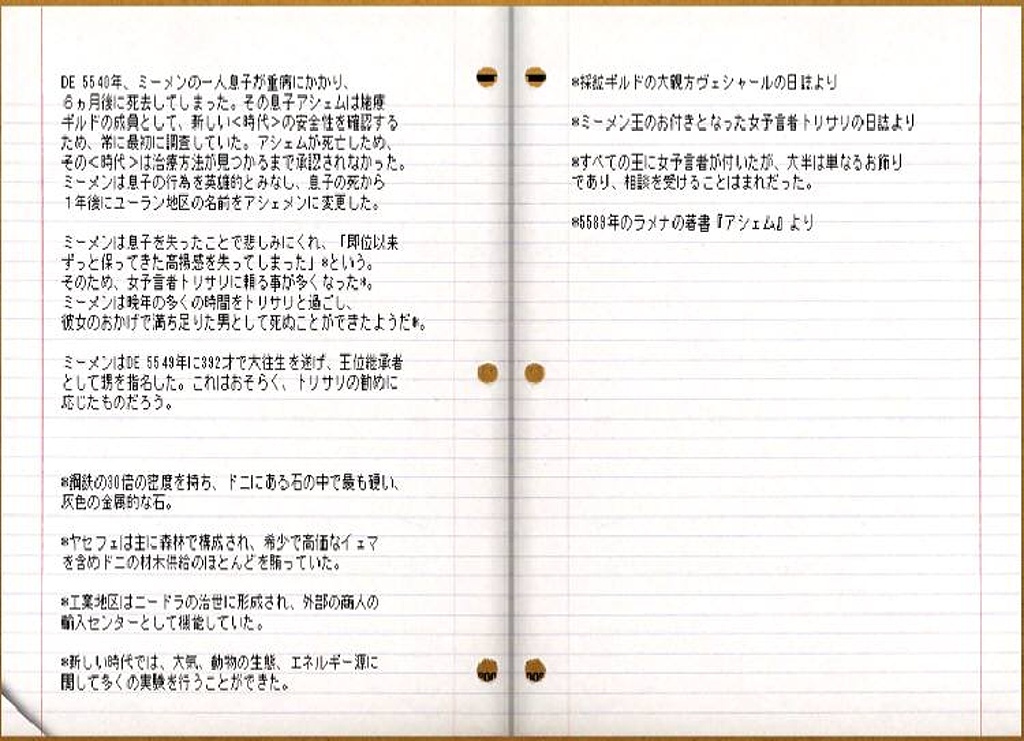 DE 5540年、ミーメンの一人息子が重病にかかり、
６ヵ月後に死去してしまった。その息子アシェムは施療
ギルドの成員として、新しい<時代>の安全性を確認する
ため、常に最初に調査していた。アシェムが死亡したため、
その<時代>は治療方法が見つかるまで承認されなかった。
ミーメンは息子の行為を英雄的とみなし、息子の死から
１年後にユーラン地区の名前をアシェメンに変更した。
ミーメンは息子を失ったことで悲しみにくれ、「即位以来
ずっと保ってきた高揚感を失ってしまった」*という。
そのため、女予言者トリサリに頼る事が多くなった*。
ミーメンは晩年の多くの時間をトリサリと過ごし、
彼女のおかげで満ち足りた男として死ぬことができたようだ*。
ミーメンはDE 5549年に392才で大往生を遂げ、王位継承者
として甥を指名した。これはおそらく、トリサリの勧めに
応じたものだろう。
*鋼鉄の30倍の密度を持ち、ドニにある石の中で最も硬い、
灰色の金属的な石。
*ヤセフェは主に森林で構成され、希少で高価なイェマ
を含めドニの材木供給のほとんどを賄っていた。
*工業地区はニードラの治世に形成され、外部の商人の
輸入センターとして機能していた。
*新しい時代では、大気、動物の生態、エネルギー源に
関して多くの実験を行うことができた。
*採鉱ギルドの大親方ヴェシャールの日誌より
*ミーメン王のお付きとなった女予言者トリサリの日誌より
*すべての王に女予言者が付いたが、大半は単なるお飾り
であり、相談を受けることはまれだった。
*5589年のラメナの著書『アシェム』より